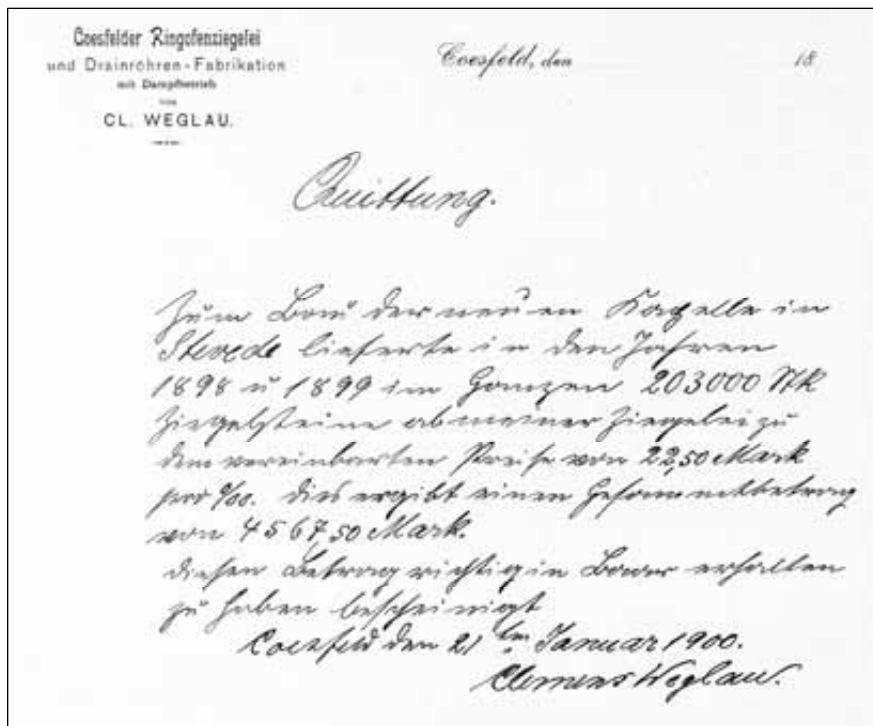 Coesfelder Ringofenziegelei
und Drainröhren-Fabrikation
mit Dampfbetrieb
von
CL. WEGLAU.
Coesfeld, den 18
Quittung.
Zum Bau der neuen Kapelle in
Stevede lieferte in den Jahren
1898 u 1899 im Ganzen 203000 Stk
Ziegelsteine ab meiner Ziegelei zu
dem vereinbarten Preise von 22,50 Mark
pro ‰. Dies ergibt einen Gesammtbetrag
von 4567,50 Mark.
Diesen Betrag richtig in Baar erhalten
zu haben bescheinigt
Coesfeld den 21ten Januar 1900.
Clemens Weglau.